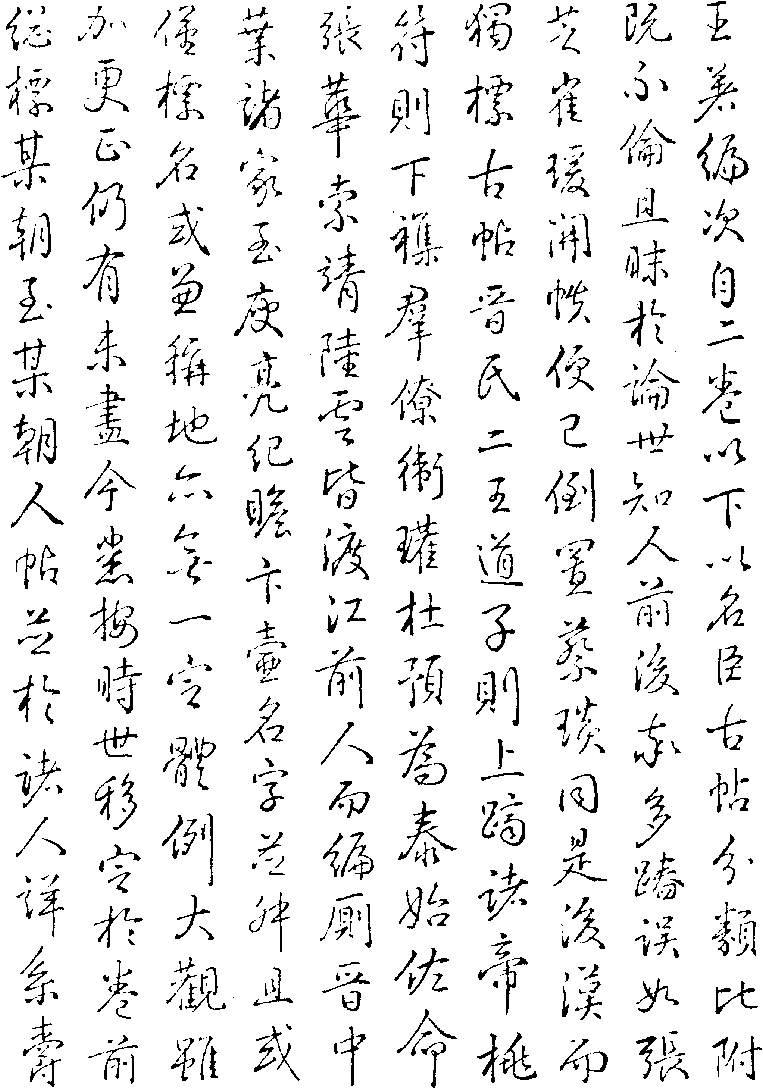 王著編次自二卷以下以名臣古帖分類比附
既不倫且昧於論世知人前後亦多踳誤如張
芝崔瑗開帙便已倒置蔡琰同是後漢而
獨標古帖晉民二王道子則上躋諸帝桃
符則下襍羣僚衛瓘杜預為泰始佐命
張華索靖陸雲皆渡江前人而編厠晉中
葉諸家至庾亮紀瞻卞壼名字並舛且或
僅標名或兼稱地亦無一定體例大觀雖
加更正仍有未盡今悉按時世移定於卷前
總標某朝至某朝人帖並於諸人詳系爵